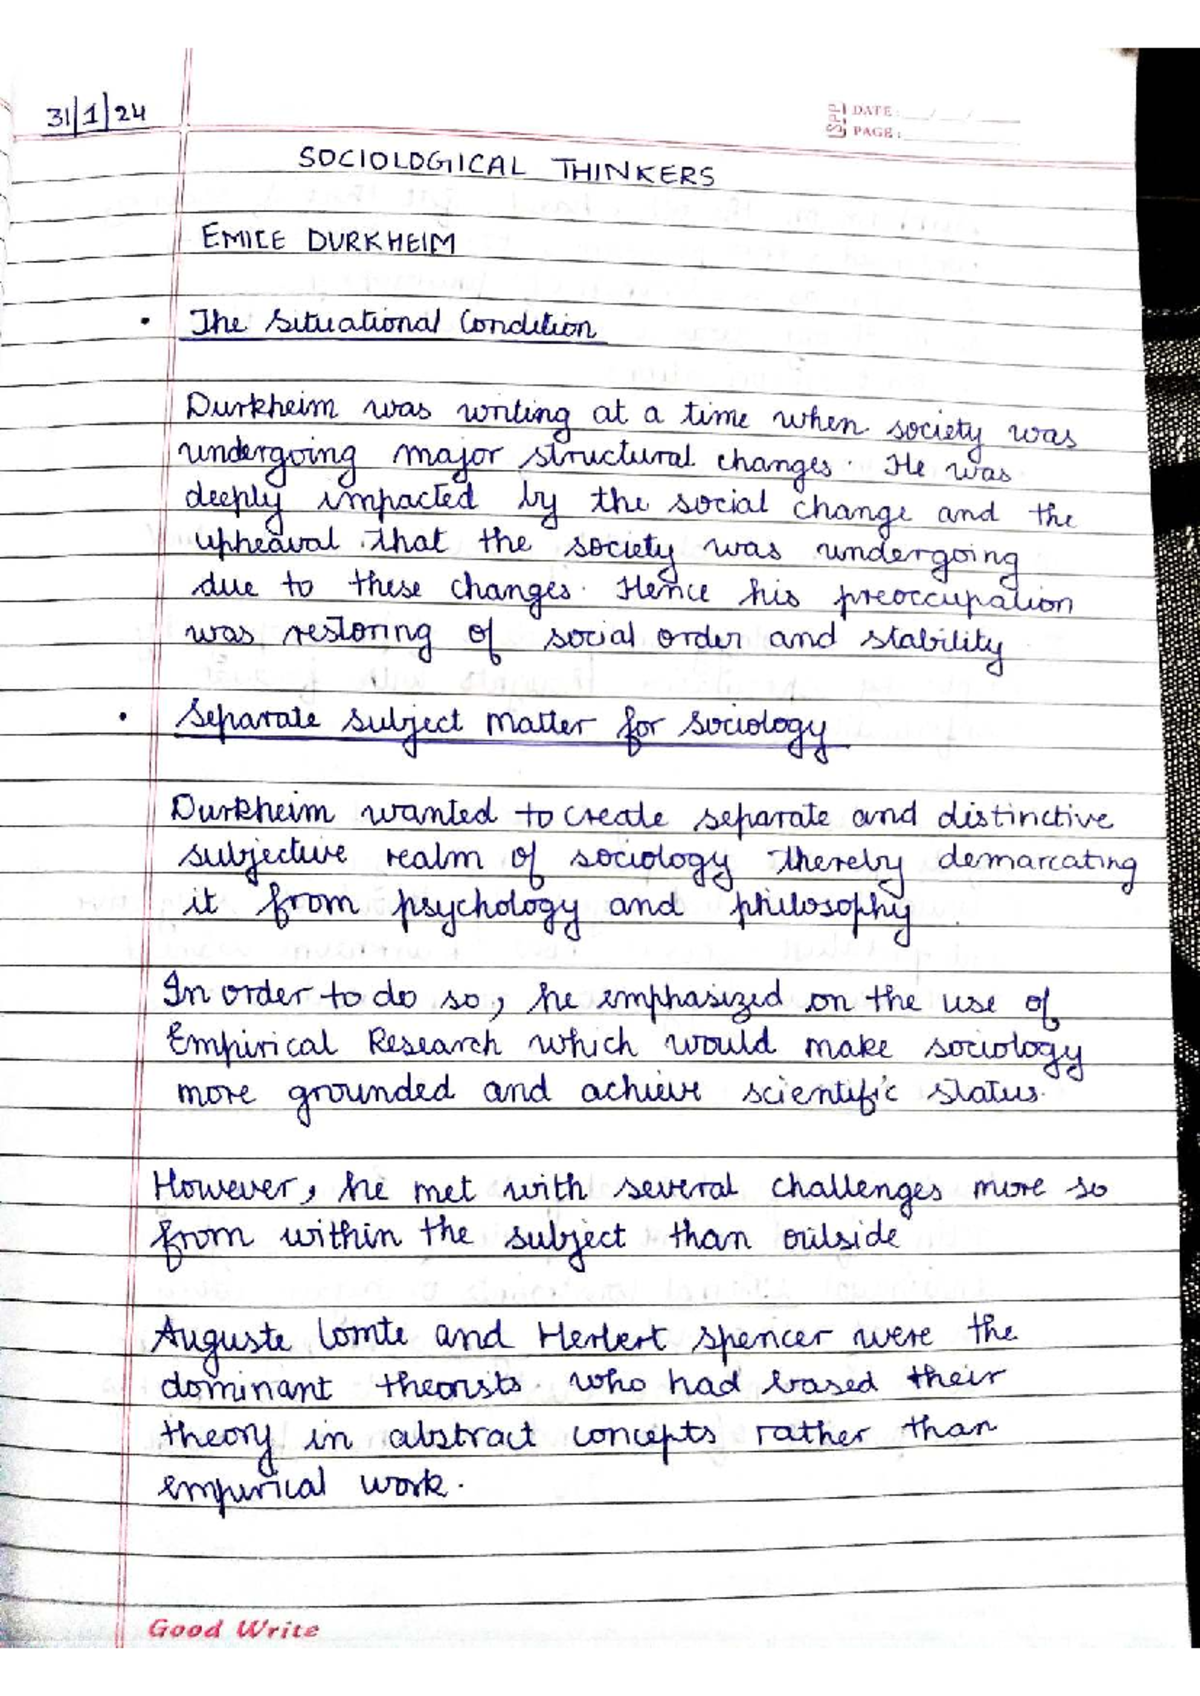 31/1/24
SPP DATE: __/__/____
PAGE: ________
SOCIOLOGICAL THINKERS
EMILE DURKHEIM
• The Situational Condition
Durkheim was writing at a time when society was
undergoing major structural changes. He was
deeply impacted by the social change and the
upheaval that the society was undergoing
due to these changes. Hence his preoccupation
was restoring of social order and stability
• Separate Subject Matter for Sociology
Durkheim wanted to create separate and distinctive
subjective realm of sociology thereby demarcating
it from psychology and philosophy.
In order to do so, he emphasized on the use of
Empirical Research which would make sociology
more grounded and achieve scientific status.
However, he met with several challenges more so
from within the subject than outside
Auguste Comte and Herbert Spencer were the
dominant theorists who had based their
theory in abstract concepts rather than
empirical work.
Good Write